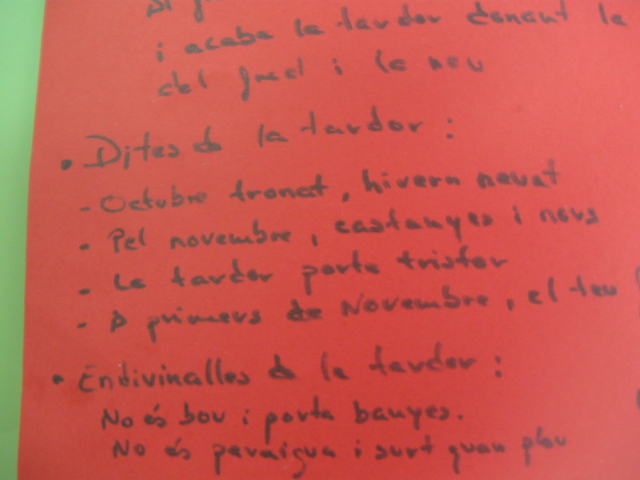 i acaba la tardor donant la
del fred i la neu
• Dites de la tardor :
- Octubre tronat, hivern nevat
- Pel novembre, castanyes i nous
- La tardor porta tristor
- A primers de Novembre, el teu
• Endivinalles de la tardor :
No és bou i porta banyes.
No és paraigua i surt quan plou